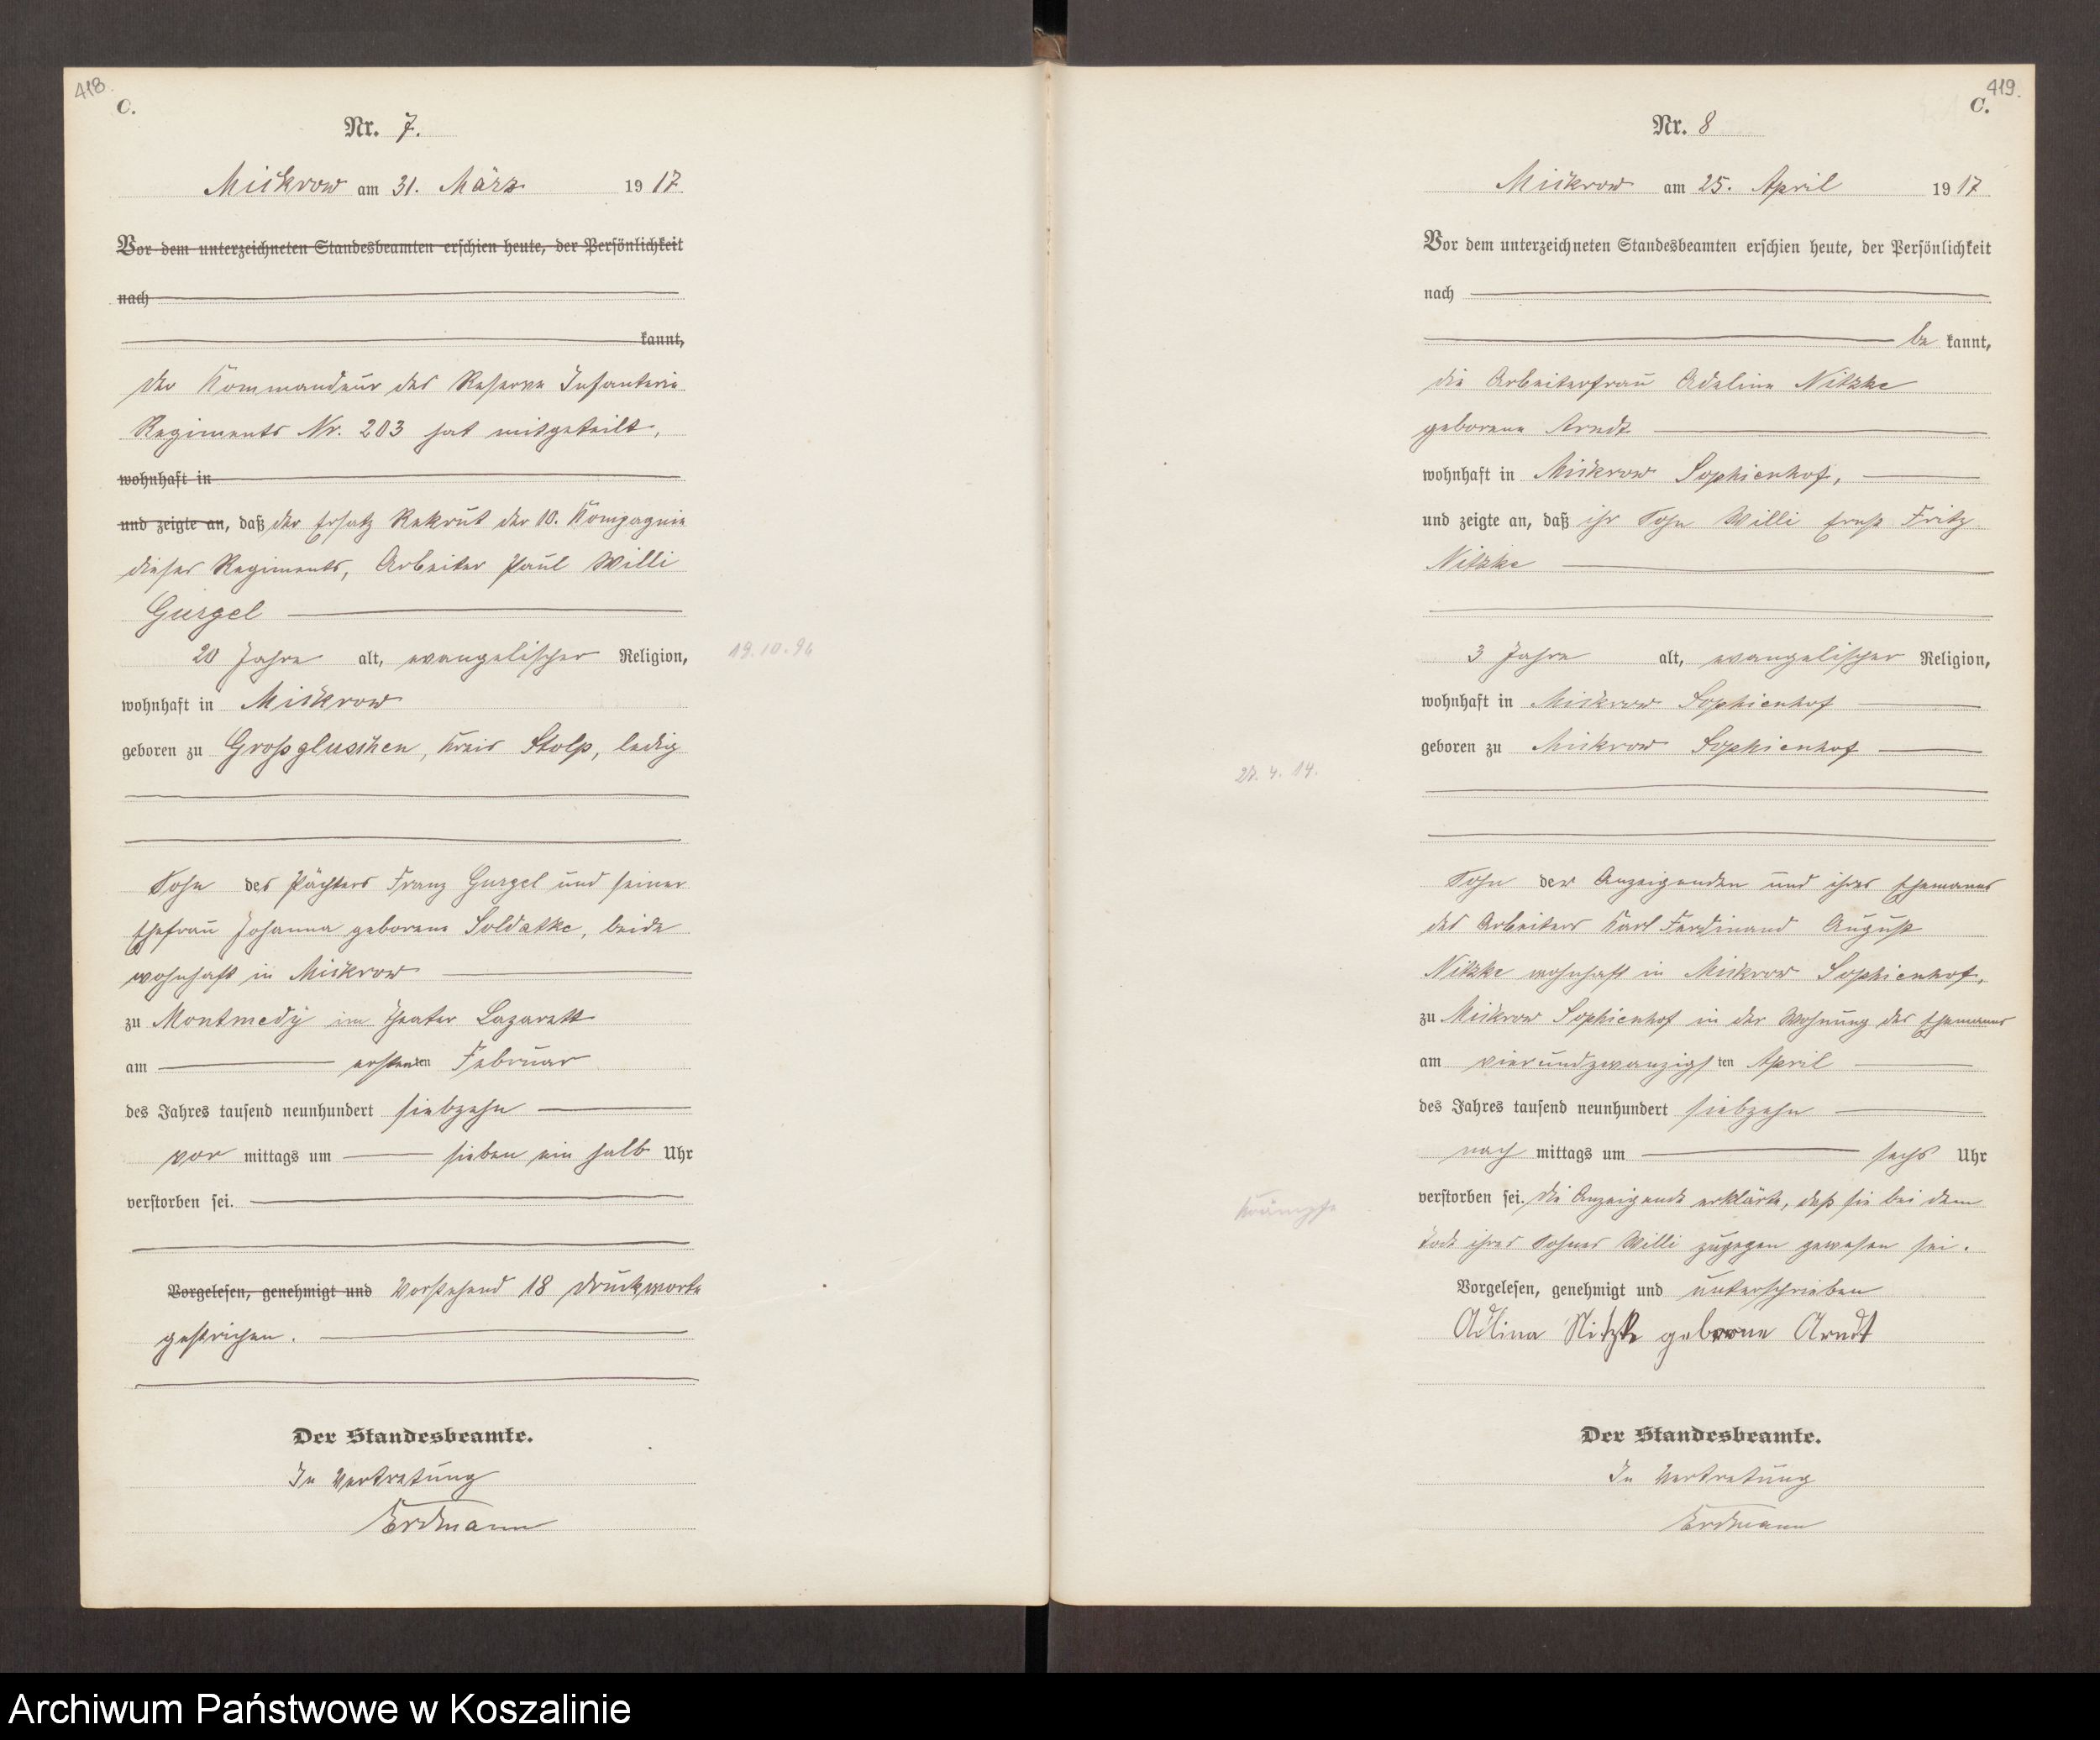 418.
C.
Nr. 7.
Mickrow am 31. März 1917
Vor dem unterzeichneten Standesbeamten erschien heute, der Persönlichkeit
nach
kannt,
Der Kommandeur des Reserve Infanterie
Regiments Nr. 203 hat mitgeteilt,
wohnhaft in
und zeigte an, daß der Ersatz Rekrut der 10. Kompagnie
dieses Regiments, Arbeiter Paul Willi
Gurgel
20 Jahre alt, evangelischer Religion,
19.10.96
wohnhaft in Mickrow
geboren zu Großgluschen, Kreis Stolp, ledig
Sohn des Pächters Franz Gurgel und seiner
Ehefrau Johanna geborene Soldatke, beide
wohnhaft in Mickrow
zu Montmedy im Theater Lazarett
am ersten ten Februar
des Jahres tausend neunhundert siebzehn
vor mittags um sieben ein halb Uhr
verstorben sei.
Vorgelesen, genehmigt und Vorstehend 18 Druckworte
gestrichen.
Der Standesbeamte.
In Vertretung
Erdmann
419.
C.
Nr. 8
Mickrow am 25. April 1917
Vor dem unterzeichneten Standesbeamten erschien heute, der Persönlichkeit
nach
be kannt,
die Arbeiterfrau Adeline Nitzke
geborene Arndt
wohnhaft in Mickrow Sophienhof,
und zeigte an, daß ihr Sohn Willi Ernst Fritz
Nitzke
3 Jahre alt, evangelischer Religion,
wohnhaft in Mickrow Sophienhof
geboren zu Mickrow Sophienhof
27. 4. 14.
Sohn der Anzeigenden und ihres Ehemanns
des Arbeiters Karl Ferdinand August
Nitzke wohnhaft in Mickrow Sophienhof,
zu Mickrow Sophienhof in der Wohnung des Ehemanns
am vierundzwanzigs ten April
des Jahres tausend neunhundert siebzehn
nach mittags um sechs Uhr
verstorben sei. Die Anzeigende erklärte, daß sie bei dem
Krämpfe
Tode ihres Sohnes Willi zugegen gewesen sei.
Vorgelesen, genehmigt und unterschrieben
Adlina Nitzke geborne Arndt
Der Standesbeamte.
In Vertretung
Erdmann
Archiwum Państwowe w Koszalinie